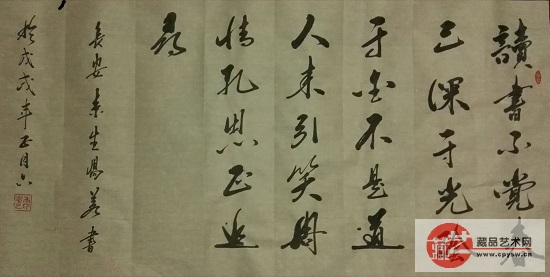 讀書不覺春
已深寸光陰
寸金不是道
人來引笑周
情孔思正追
尋
長安生書
於戊戌年正月
藏品艺术网
www.cpysw.com